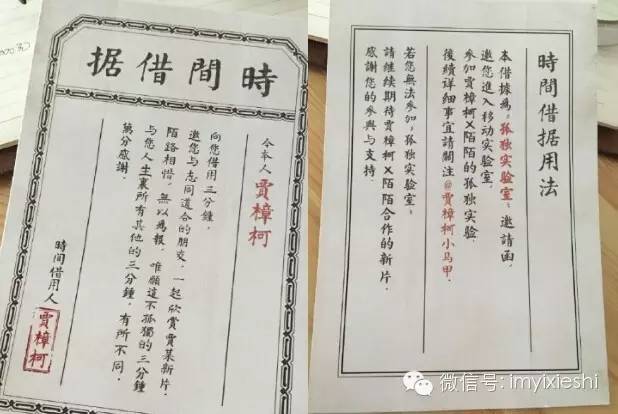 時間借据
今本人賈樟柯
向您借用三分鐘,
邀您与志同道合的朋友,一起欣赏賈某新片.
陌路相惜,無以為報,唯願這不孤獨的三分鐘
与您人生裏所有其他的三分鐘,有所不同.
萬分感謝.
時間借用人
賈樟柯
時間借据用法
本借據為「孤独实验室」邀請函,
邀您進入移动实验室,
参加賈樟柯X陌陌的孤独实验.
後續详细事宜請關注@賈樟柯小马甲.
若您無法参加「孤独实验室」
請继续期待賈樟柯X陌陌合作的新片.
感謝您的参與与支持.
微信号: imyixieshi